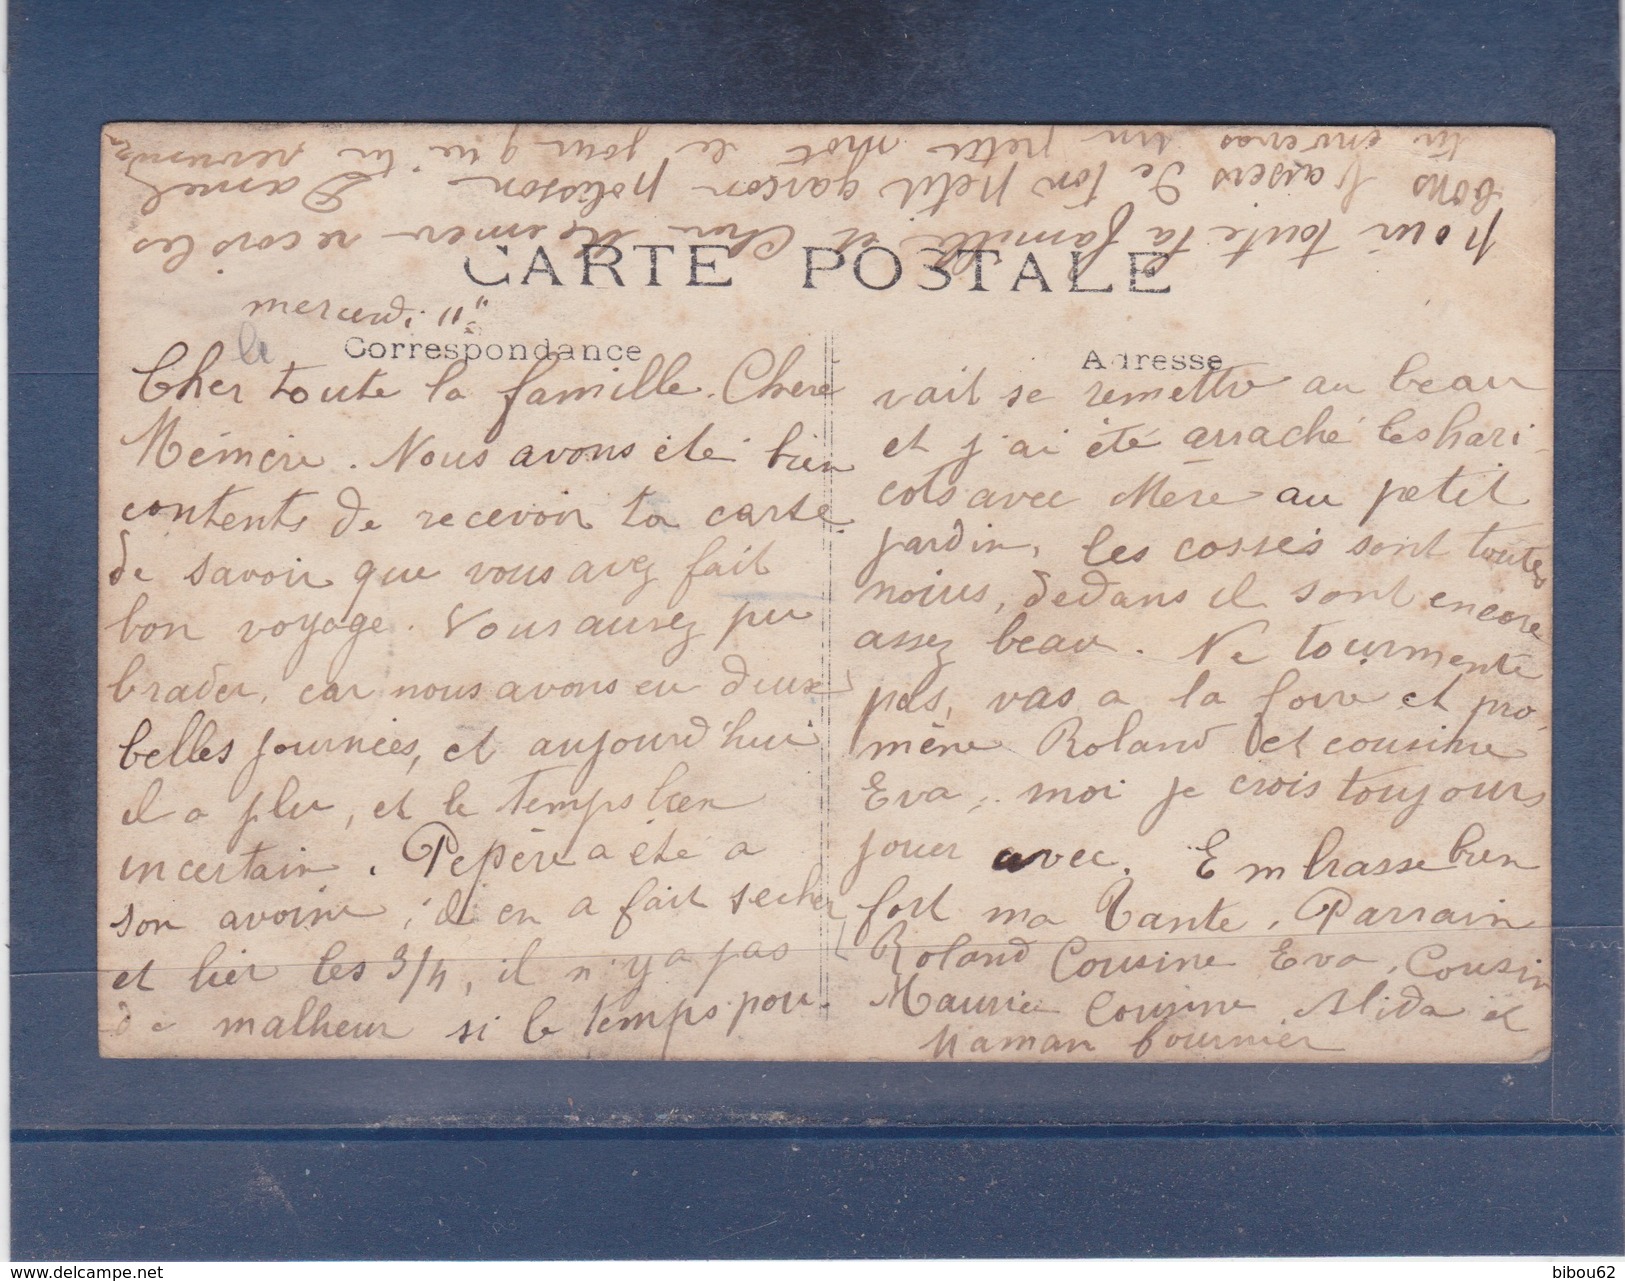 CARTE POSTALE
mercredi 11
le
Correspondance
Cher toute la famille. Chere
Mémère. Nous avons été bien
contents de recevoir ta carte
de savoir que vous avez fait
bon voyage. Vous aurez pu
brader, car nous avons eu deux
belles journées, et aujourd'hui
il a plu, et le temps bien
incertain. Pépère a été a
son avoine, il en a fait secher
et lier les 3/4, il n'y a pas
de malheur si le temps pou-
Adresse
vait se remettre au beau
et j'ai été arraché les hari-
cots avec Mère au petit
jardin, les cosses sont toutes
noires, dedans il sont encore
assez beau. Ne tourmente
pas, vas a la foire et pro-
mène Roland et cousine
Eva, moi je crois toujours
jouer avec. Embrasse bien
fort ma Tante, Parrain
Roland Cousine Eva, Cousin
Maurice Cousine Alida et
Maman fournier
pour toute la famille et Cher Mémer recois les
bons baisers de ton petit garcon polisson Daniel
tu enverras un petit mot le jour que tu reviendra